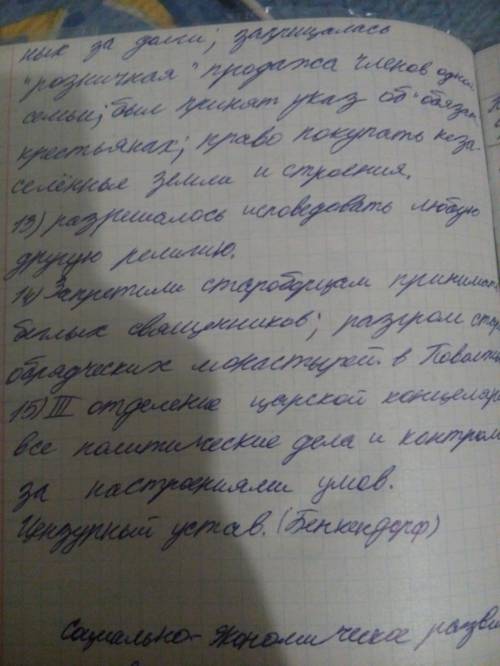 ных за долги; запрещалась
"розничная" продажа членов одной
семьи; был принят указ об "обязан
крестьянах; право покупать неза-
селённые земли и строения.
13) разрешалось исповедовать любую
другую религию.
14) Запретили староборцам принимать
беглых священников; разгром ста
обрядческих монастырей в Поволж
15) III отделение царской концеляр
все политические дела и контрол
за настроениями умов.
Цензурный устав. (Бенкендорф)
Социально-экономическое разви